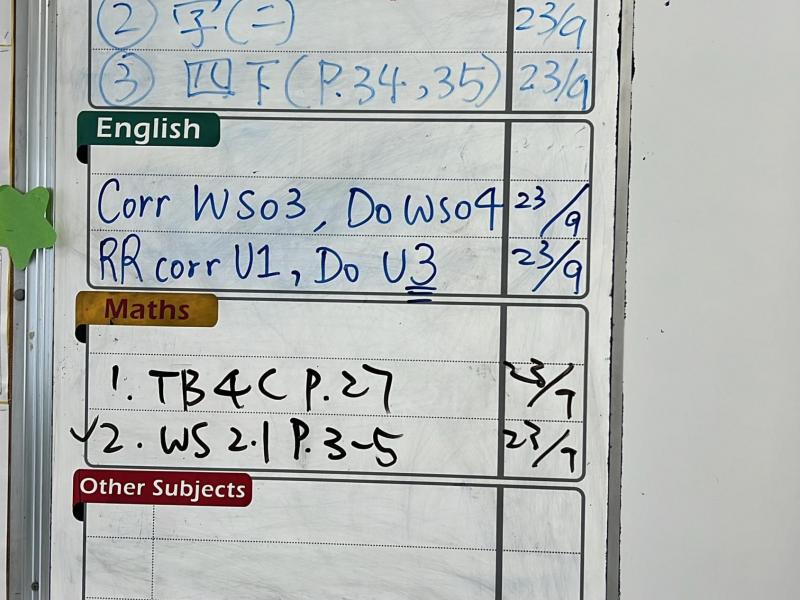 ② 字(二) 23/9
③ 四下(P.34,35) 23/9
English
Corr WS03, Do WS04 23/9
RR corr U1, Do U3 23/9
Maths
1. TB 4C P.27 23/9
✓2. WS 2.1 P.3-5 23/9
Other Subjects